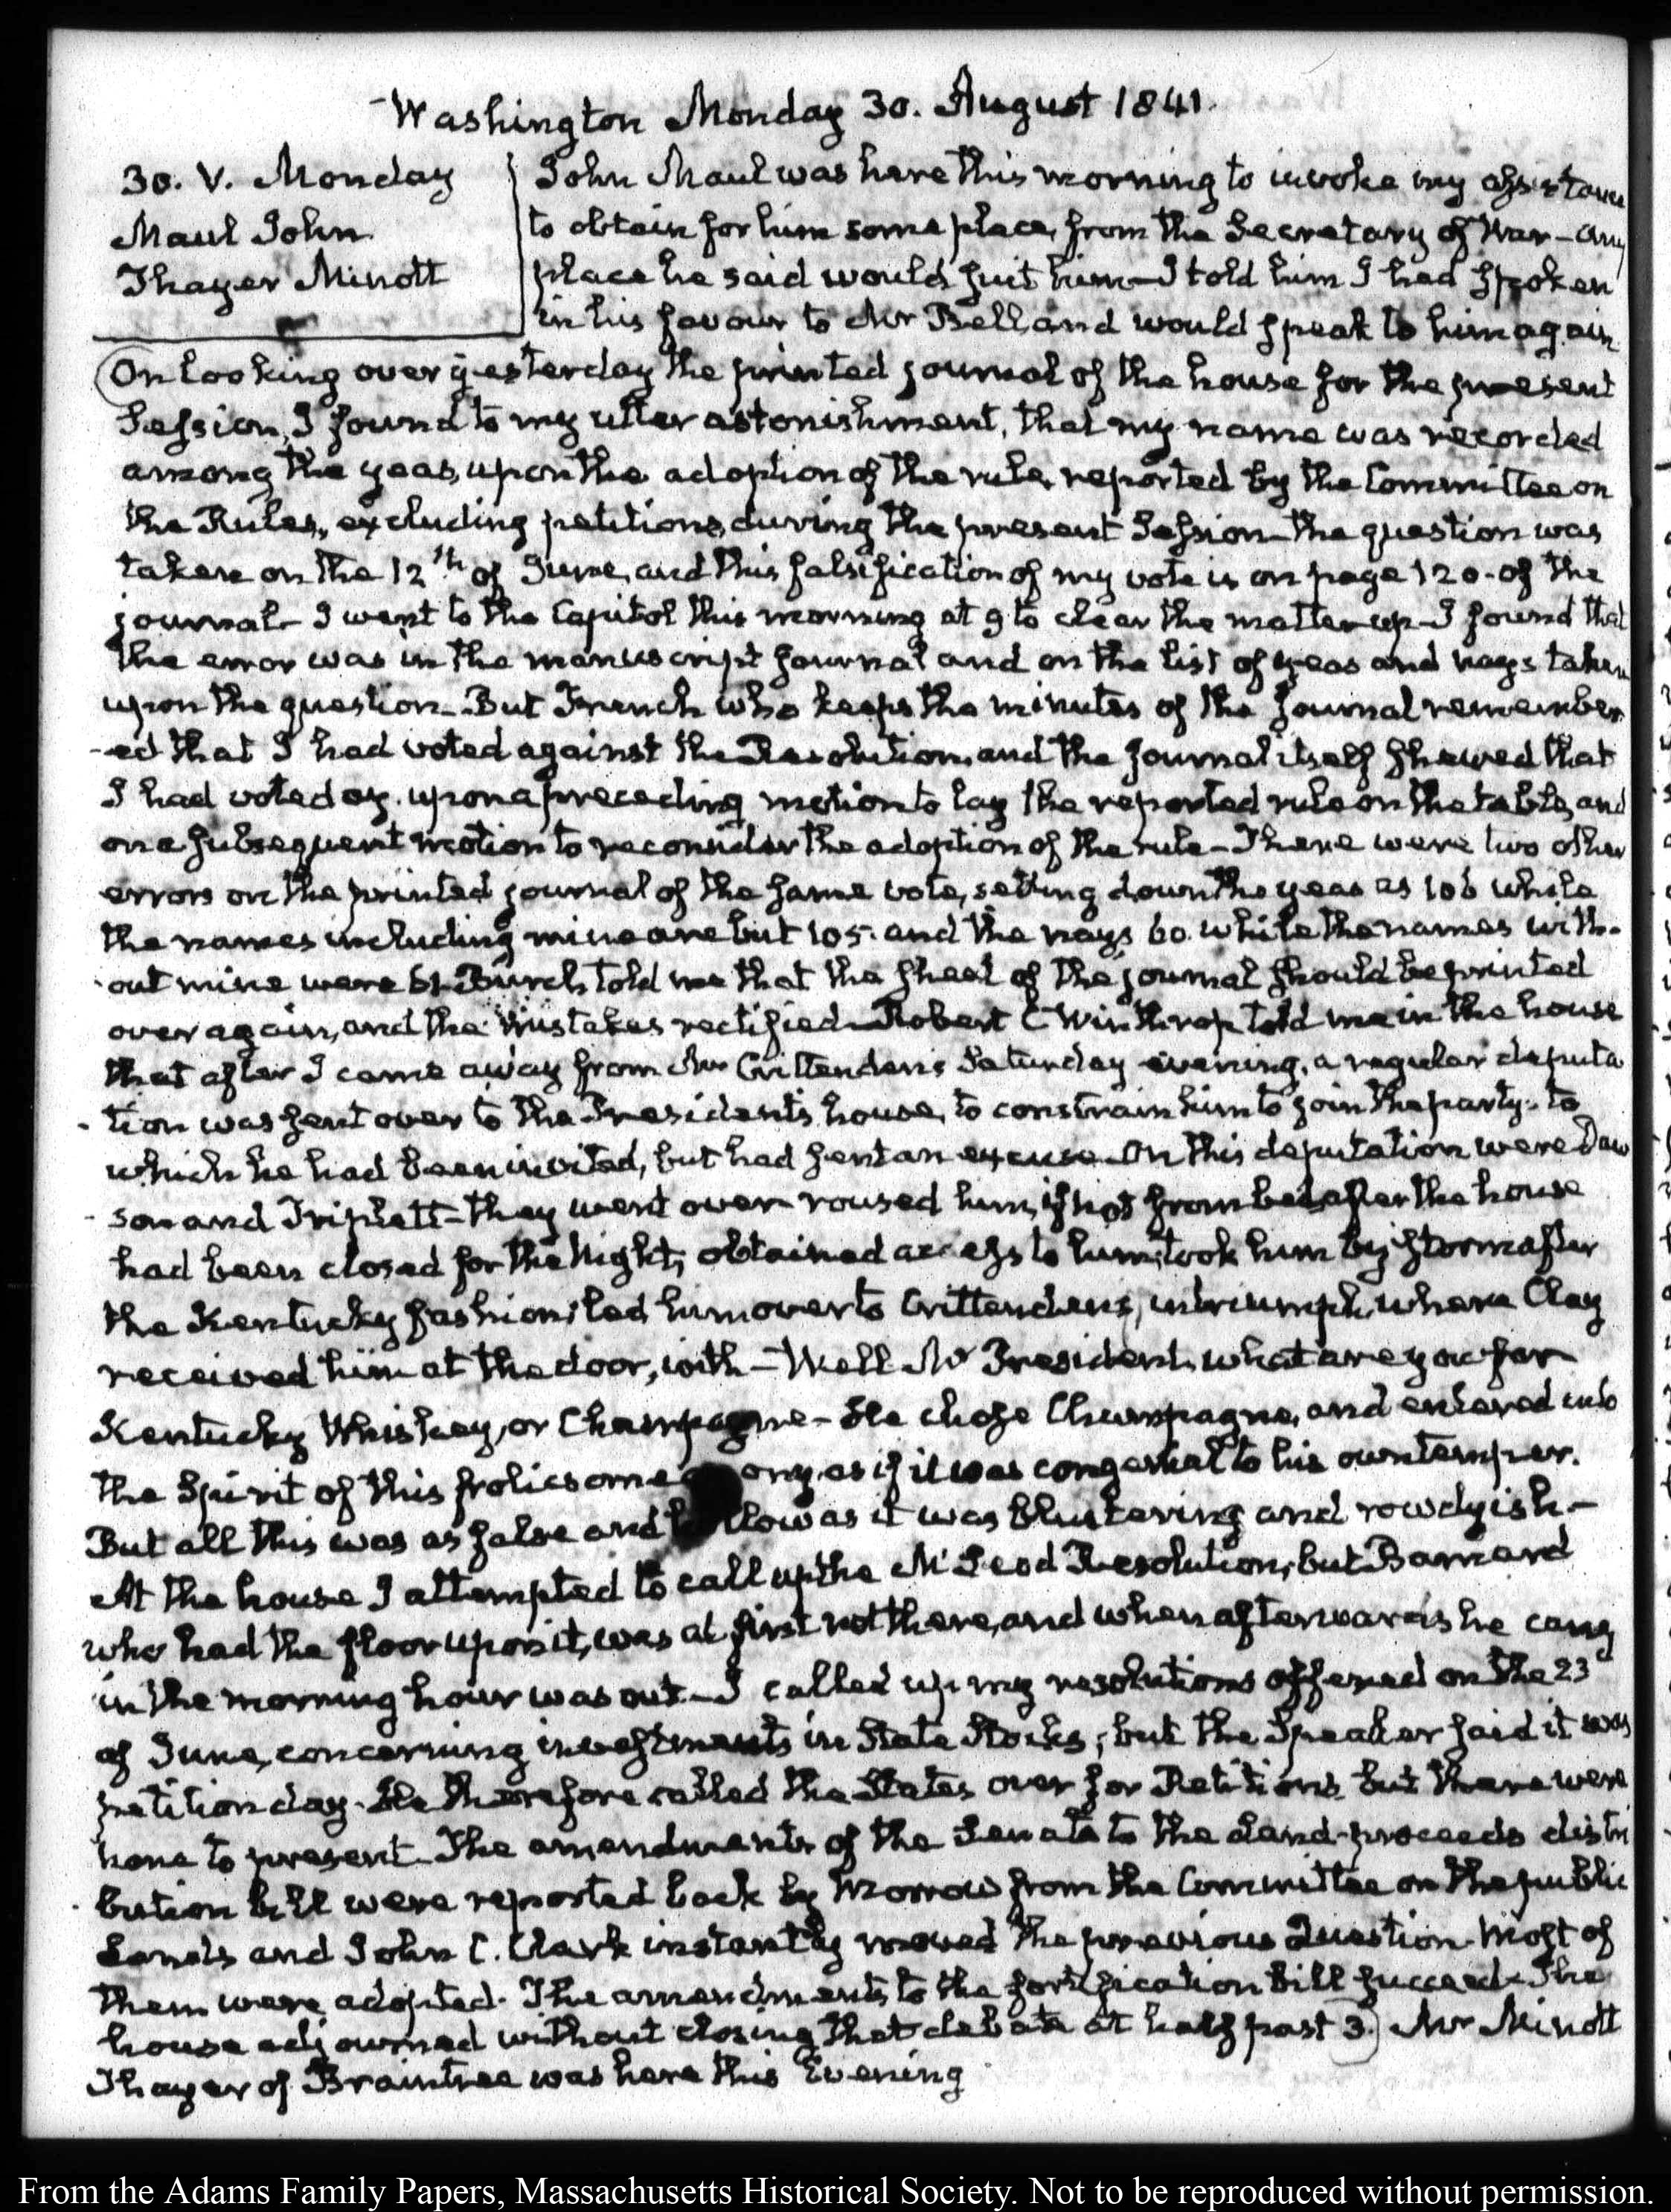 Washington Monday 30. August 1841.
30. V. Monday
Maul John
Thayer Minott
John Maul was here this morning to invoke my assistance
to obtain for him some place, from the Secretary of War – any
place he said would suit him – I told him I had spoken
in his favour to Mr Bell, and would speak to him again
On looking over yesterday the printed journal of the house for the present
Session, I found to my utter astonishment, that my name was recorded
among the yeas, upon the adoption of the rule, reported by the Committee on
the Rules, excluding petitions, during the present Session – the question was
taken on the 12th of June, and this falsification of my vote is on page 120. of the
journal – I went to the Capitol this morning at 9 to clear the matter up – I found that
the error was in the manuscript journal and on the list of yeas and nays taken
upon the question – But French who keeps the minutes of the journal remember
-ed that I had voted against the Resolution, and the journal itself shewed that
I had voted ay. upon a preceding motion to lay the reported rule on the table, and
on a subsequent motion to reconsider the adoption of the rule – There were two other
errors on the printed journal of the same vote, setting down the yeas as 106 while
the names including mine are but 105. and the nays 60. while the names with-
out mine were 61 – Burch told me that the sheet of the journal should be printed
over again, and the mistakes rectified – Robert C Winthrop told me in the house
that after I came away from Mr Crittenden's Saturday evening, a regular deputa
-tion was sent over to the President's house, to constrain him to join the party, to
which he had been invited, but had sent an excuse – On this deputation were Daw
-son and Triplett – they went over roused him, if not from bed after the house
had been closed for the night, obtained access to him, took him by storm after
the Kentucky fashion, led him over to Crittenden's, in triumph, where Clay
received him at the door, with – Well Mr President, what are you for
Kentucky Whiskey, or Champagne – He chose Champagne, and entered into
the Spirit of this frolicsome as if it was congenial to his own temper.
But all this was as false and hollow as it was blustering and rowdyish –
At the house I attempted to call up the McLeod Resolution, but Barnard
who had the floor upon it, was at first not there, and when afterwards he came
in the morning hour was out – I called up my resolutions offered on the 23d
of June, concerning investments in State Stocks; but the Speaker said it was
petition day – He therefore called the States over for Petitions, but there were
none to present – The amendments of the Senate to the Land-proceeds distri
-bution bill were reported back by Morrow from the Committee on the public
Lands and John C. Clark instantly moved the previous Question – Most of
them were adopted. The amendments to the fortification bill succeed – The
house adjourned without closing that debate at half past 3.) Mr Minott
Thayer of Braintree was here this Evening
From the Adams Family Papers, Massachusetts Historical Society. Not to be reproduced without permission.